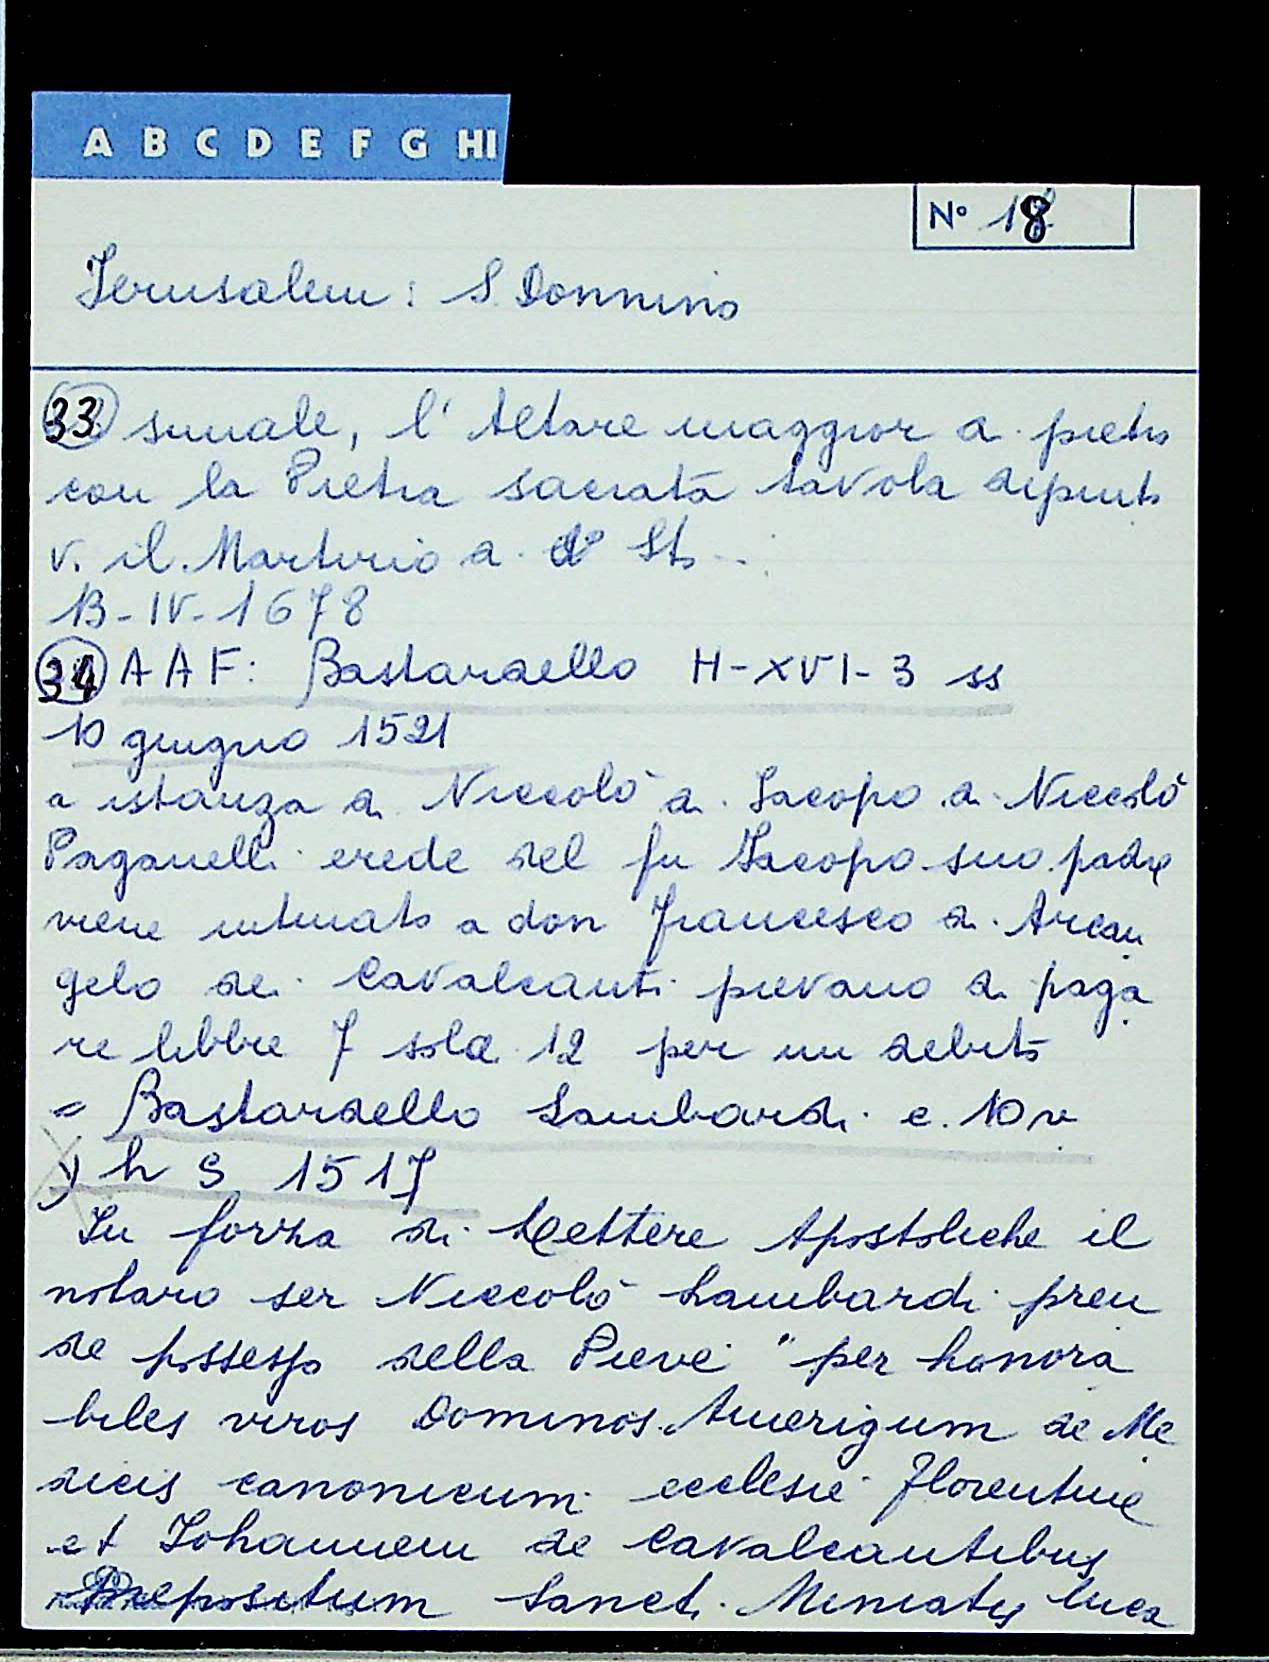 A B C D E F G HI
N° 18
Jerusalem: S. Donnino
33 suuale, l'Altare maggior di pietra
con la Pietra sacrata tavola dipinta
v. il Martirio di d° Sto...
13-IV-1678
34 AAF: Bastardello H-XVI-3 ss
10 giugno 1521
a istanza di Niccolò di Iacopo di Niccolò
Paganelli erede del fu Iacopo suo padre
viene intimato a don Francesco di Arcan
gelo dei Cavalcanti pievano di paga
re libbre 7 soldi 12 per un debito
= Bastardello Lambardi c. 10 v
1517
In forza di Lettere Apostoliche il
notaro ser Niccolò Lambardi pren
de possesso della Pieve "per honora
biles viros Dominos Amerigum de Me
dicis canonicum ecclesie Florentine
et Iohannem de Cavalcantibus
Prepositum Sancti Miniatis luca